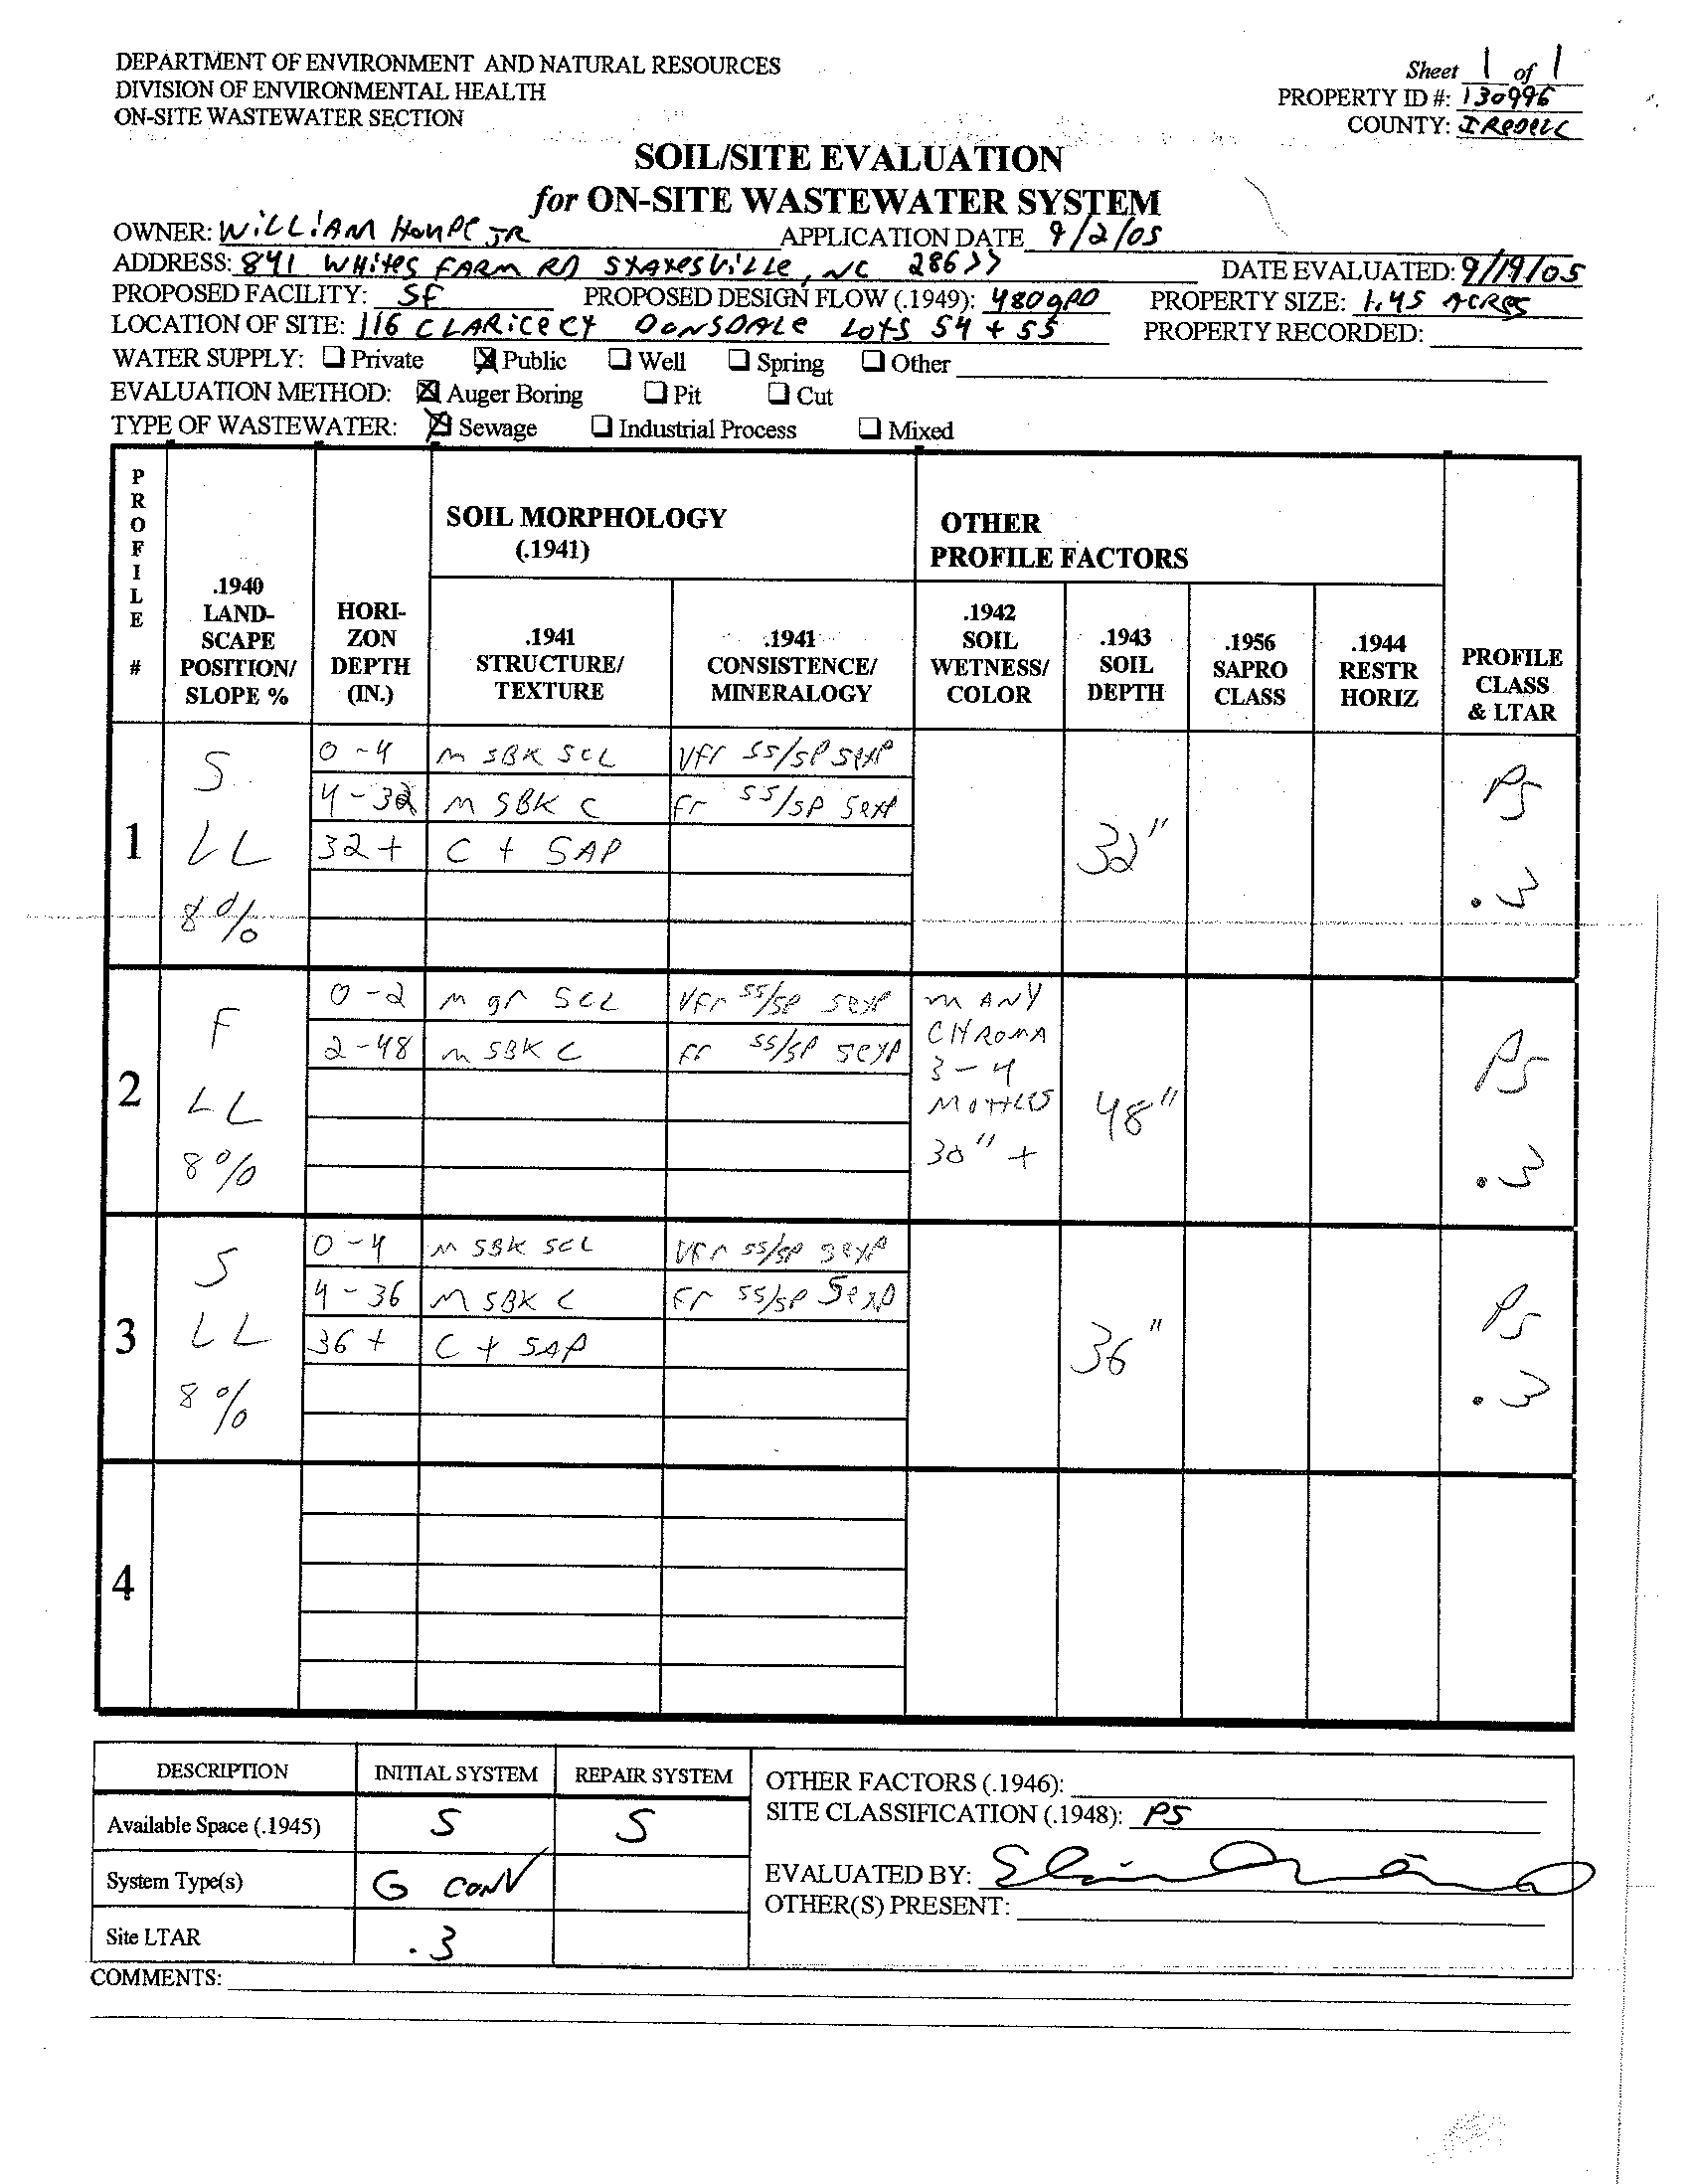 DEPARTMENT OF ENVIRONMENT AND NATURAL RESOURCES
DIVISION OF ENVIRONMENTAL HEALTH
ON-SITE WASTEWATER SECTION
Sheet 1 of 1
PROPERTY ID #: 130996
COUNTY: IREDELL
SOIL/SITE EVALUATION
for ON-SITE WASTEWATER SYSTEM
OWNER: WILLIAM JR APPLICATION DATE 9/2/05
ADDRESS: 841 WHITES FARM RD STATESVILLE, NC 28677 DATE EVALUATED: 9/19/05
PROPOSED FACILITY: SF PROPOSED DESIGN FLOW (.1949): 480 GPD PROPERTY SIZE: 1.45 ACRES
LOCATION OF SITE: 116 CLARICE CT LOTS 54 + 55 PROPERTY RECORDED:
WATER SUPPLY: Private Public Well Spring Other
EVALUATION METHOD: Auger Boring Pit Cut
TYPE OF WASTEWATER: Sewage Industrial Process Mixed
PROFILE #
.1940 LAND-SCAPE POSITION/ SLOPE %
HORI-ZON DEPTH (IN.)
SOIL MORPHOLOGY (.1941)
.1941 STRUCTURE/ TEXTURE
.1941 CONSISTENCE/ MINERALOGY
OTHER PROFILE FACTORS
.1942 SOIL WETNESS/ COLOR
.1943 SOIL DEPTH
.1956 SAPRO CLASS
.1944 RESTR HORIZ
PROFILE CLASS & LTAR
1
S
LL
8%
0-4 m SBK SCL Vfr SS/SP SEXP
4-32 m SBK C Fr SS/SP SEXP
32+ C + SAP
32"
PS
.3
2
F
LL
8%
0-2 m gr SCL Vfr SS/SP SEXP
2-48 m SBK C Fr SS/SP SEXP
MANY
CHROMA
3-4
MOTTLES
30"+
48"
PS
.3
3
S
LL
8%
0-4 m SBK SCL Vfr SS/SP SEXP
4-36 m SBK C Fr SS/SP SEXP
36+ C + SAP
36"
PS
.3
4
DESCRIPTION INITIAL SYSTEM REPAIR SYSTEM
Available Space (.1945) S S
System Type(s) G CONV
Site LTAR .3
OTHER FACTORS (.1946):
SITE CLASSIFICATION (.1948): PS
EVALUATED BY:
OTHER(S) PRESENT:
COMMENTS: